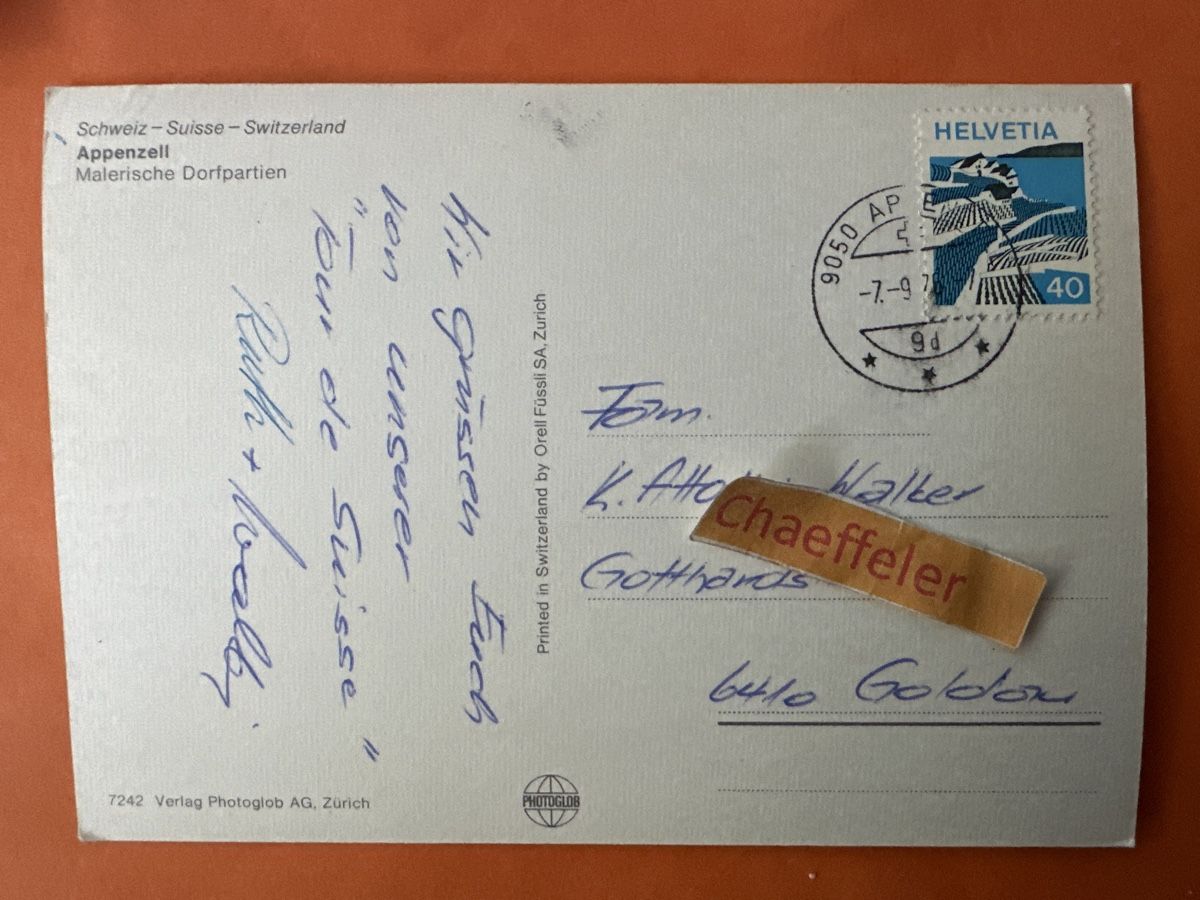 Schweiz – Suisse – Switzerland
Appenzell
Malerische Dorfpartien
HELVETIA
40
9050 AP
-7.-9 7
9d
Wir grüssen Euch
von unserer
"Tour de Suisse"
Ruth + Woalty.
Printed in Switzerland by Orell Füssli SA, Zurich
Fam.
K. Walker
Chaeffeler
Gotthards
6410 Goldau
7242 Verlag Photoglob AG, Zürich
PHOTOGLOB